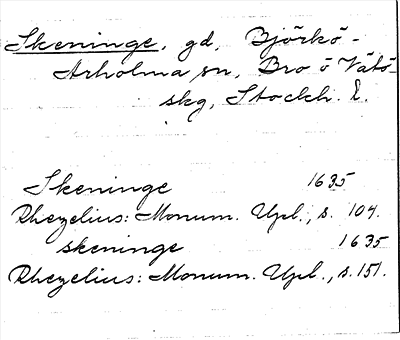 Skeninge, gd, Björkö-
Arholma sn, Bro o Vätö
skg, Stockh. L.
Skeninge 1635
Rhezelius: Monum. Upl., s. 104.
skeninge 1635
Rhezelius: Monum. Upl., s. 151.